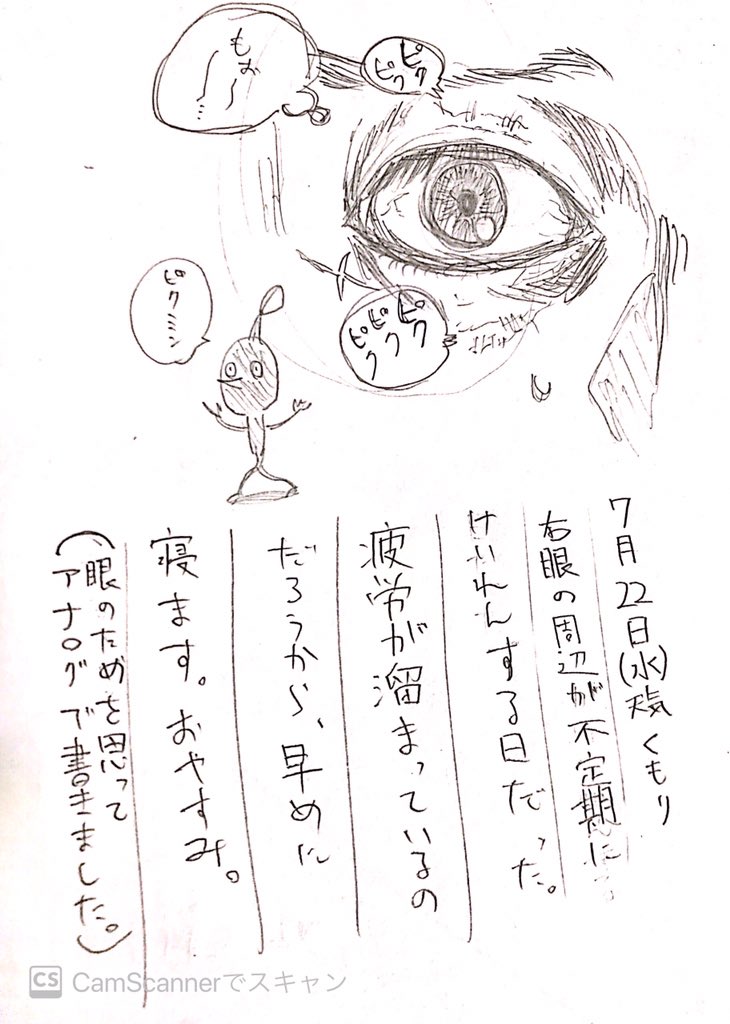 もぉ〜…
ピクピク
ピクピクピク
ピクミン
7月22日(水)天気くもり
右眼の周辺が不定期に
けいれんする日だった。
疲労が溜まっているの
だろうから、早めに
寝ます。おやすみ。
(眼のためを思って
アナログで書きました。)
CS CamScannerでスキャン